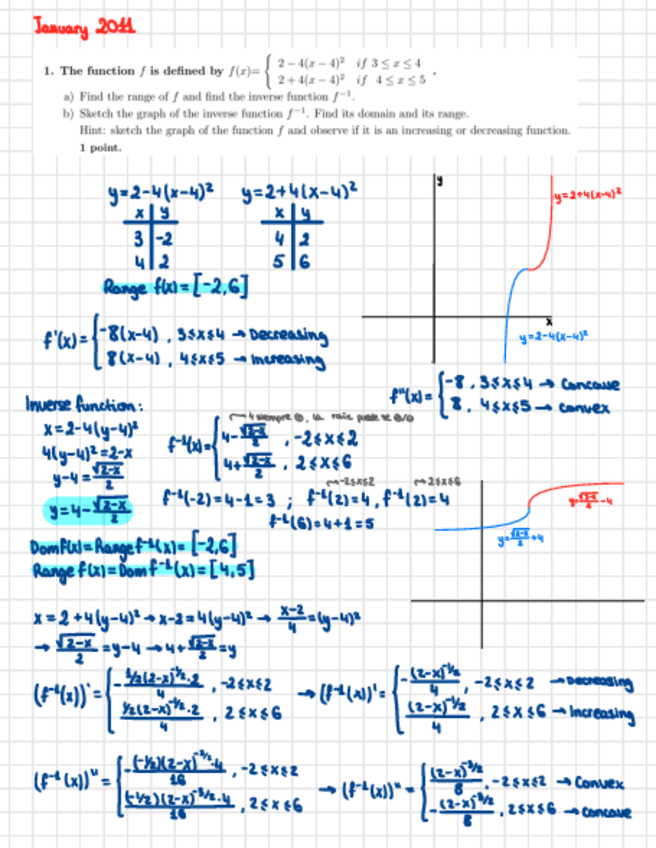 January 2011
1. The function f is defined by f(x)= { 2 − 4(x − 4)² if 3 ≤ x ≤ 4
2 + 4(x − 4)² if 4 ≤ x ≤ 5 .
a) Find the range of f and find the inverse function f⁻¹.
b) Sketch the graph of the inverse function f⁻¹. Find its domain and its range.
Hint: sketch the graph of the function f and observe if it is an increasing or decreasing function.
1 point.
y=2-4(x-4)² y=2+4(x-4)²
x | y x | y
3 | -2 4 | 2
4 | 2 5 | 6
Range f(x)=[-2,6]
y
y=2+4(x-4)²
x
y=2-4(x-4)²
f'(x)= { -8(x-4) , 3≤x≤4 → Decreasing
8(x-4) , 4≤x≤5 → Increasing
f''(x)= { -8 , 3≤x≤4 → Concave
8 , 4≤x≤5 → convex
Inverse function:
x=2-4(y-4)²
4(y-4)²=2-x
y-4=√(2-x)/2
y=4-√(2-x)/2
siempre ⊕, la raíz puede
f⁻¹(x)= { 4-√(2-x)/2 , -2≤x≤2
4+√(2-x)/2 , 2≤x≤6
-2≤x≤2 2≤x≤6
f⁻¹(-2)=4-1=3 ; f⁻¹(2)=4 , f⁻¹(2)=4
f⁻¹(6)=4+1=5
y=√(2-x)/2-4
y=√(2-x)/2+4
Dom f(x)=Range f⁻¹(x)=[-2,6]
Range f(x)=Dom f⁻¹(x)=[4,5]
x=2+4(y-4)² → x-2=4(y-4)² → (x-2)/4=(y-4)²
→ √(2-x)/2=y-4 → 4+√(2-x)/2=y
(f⁻¹(x))'= { -½(2-x)^-½·2/4 , -2≤x≤2 → (f⁻¹(x))'= { -(2-x)^-½/4 , -2≤x≤2 → Decreasing
½(2-x)^-½·2/4 , 2≤x≤6 (2-x)^-½/4 , 2≤x≤6 → Increasing
(f⁻¹(x))''= { -(-½)(2-x)^-3/2·4/16 , -2≤x≤2 → (f⁻¹(x))''= { (2-x)^-3/2/8 , -2≤x≤2 → Convex
(-½)(2-x)^-3/2·4/16 , 2≤x≤6 -(2-x)^-3/2/8 , 2≤x≤6 → concave